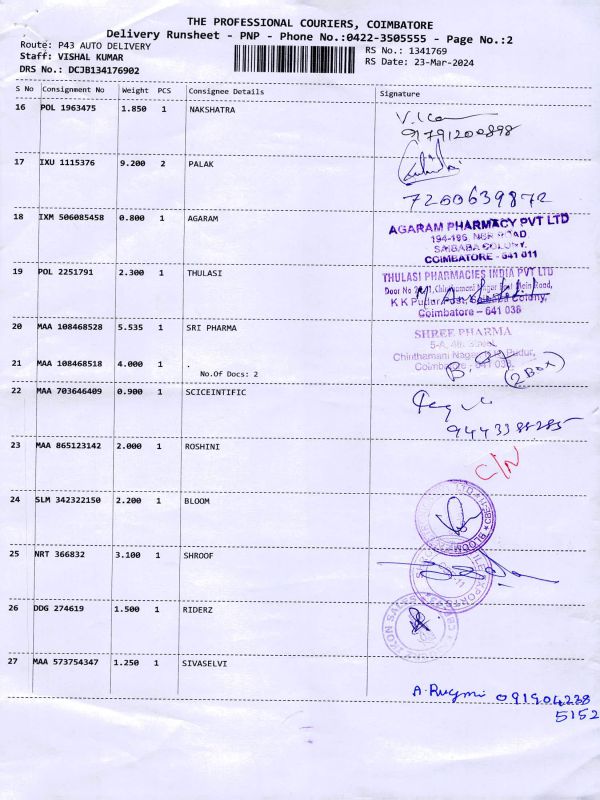 THE PROFESSIONAL COURIERS, COIMBATORE
Delivery Runsheet - PNP - Phone No.:0422-3505555 - Page No.:2
Route: P43 AUTO DELIVERY
Staff: VISHAL KUMAR
DRS No.: DCJB134176902
RS No.: 1341769
RS Date: 23-Mar-2024
S No Consignment No Weight PCS Consignee Details Signature
16 POL 1963475 1.850 1 NAKSHATRA
9791200898
17 IXU 1115376 9.200 2 PALAK
7260639872
18 IXM 506085458 0.800 1 AGARAM
AGARAM PHARMACY PVT LTD
194-196, NSR ROAD
SAIBABA COLONY,
COIMBATORE - 641 011
19 POL 2251791 2.300 1 THULASI
THULASI PHARMACIES INDIA PVT LTD
Door No Chinthamani Nagar East Main Road,
K K Pudur Post, Colony,
Coimbatore - 641 038
20 MAA 108468528 5.535 1 SRI PHARMA
SHREE PHARMA
5-A, 4th Street,
Chinthamani Nagar, K.K. Pudur,
Coimbatore - 641 038.
21 MAA 108468518 4.000 1 .
No.Of Docs: 2
(2 Box)
22 MAA 703646409 0.900 1 SCICEINTIFIC
9443388285
23 MAA 865123142 2.000 1 ROSHINI
C/N
24 SLM 342322150 2.200 1 BLOOM
25 NRT 366832 3.100 1 SHROOF
26 DDG 274619 1.500 1 RIDERZ
27 MAA 573754347 1.250 1 SIVASELVI
A. 091904228
5152